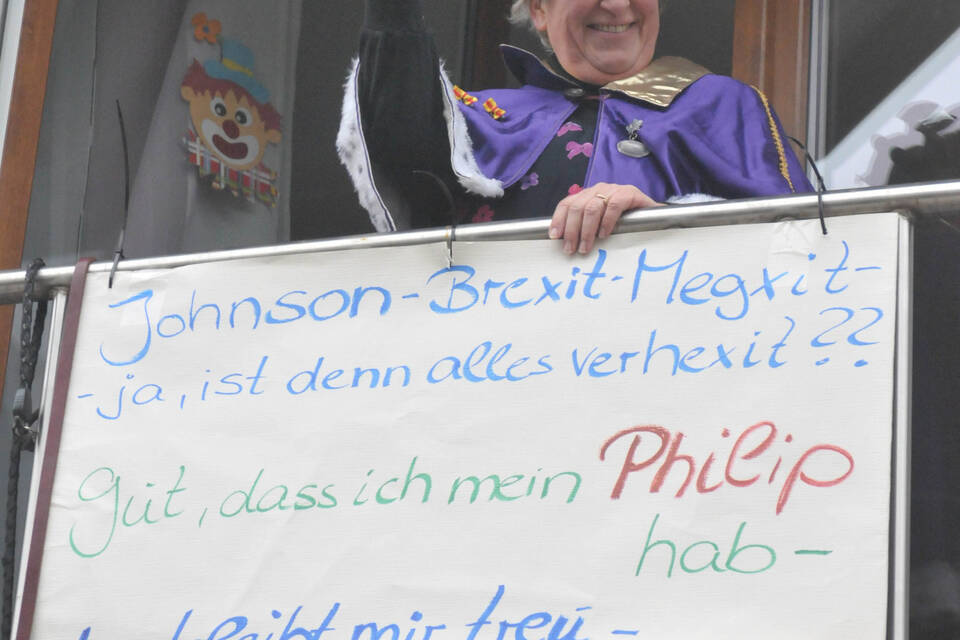 Johnson-Brexit-Megxit-
-ja, ist denn alles verhexit??
Gut, dass ich mein Philip
hab-
bleibt mir treu-